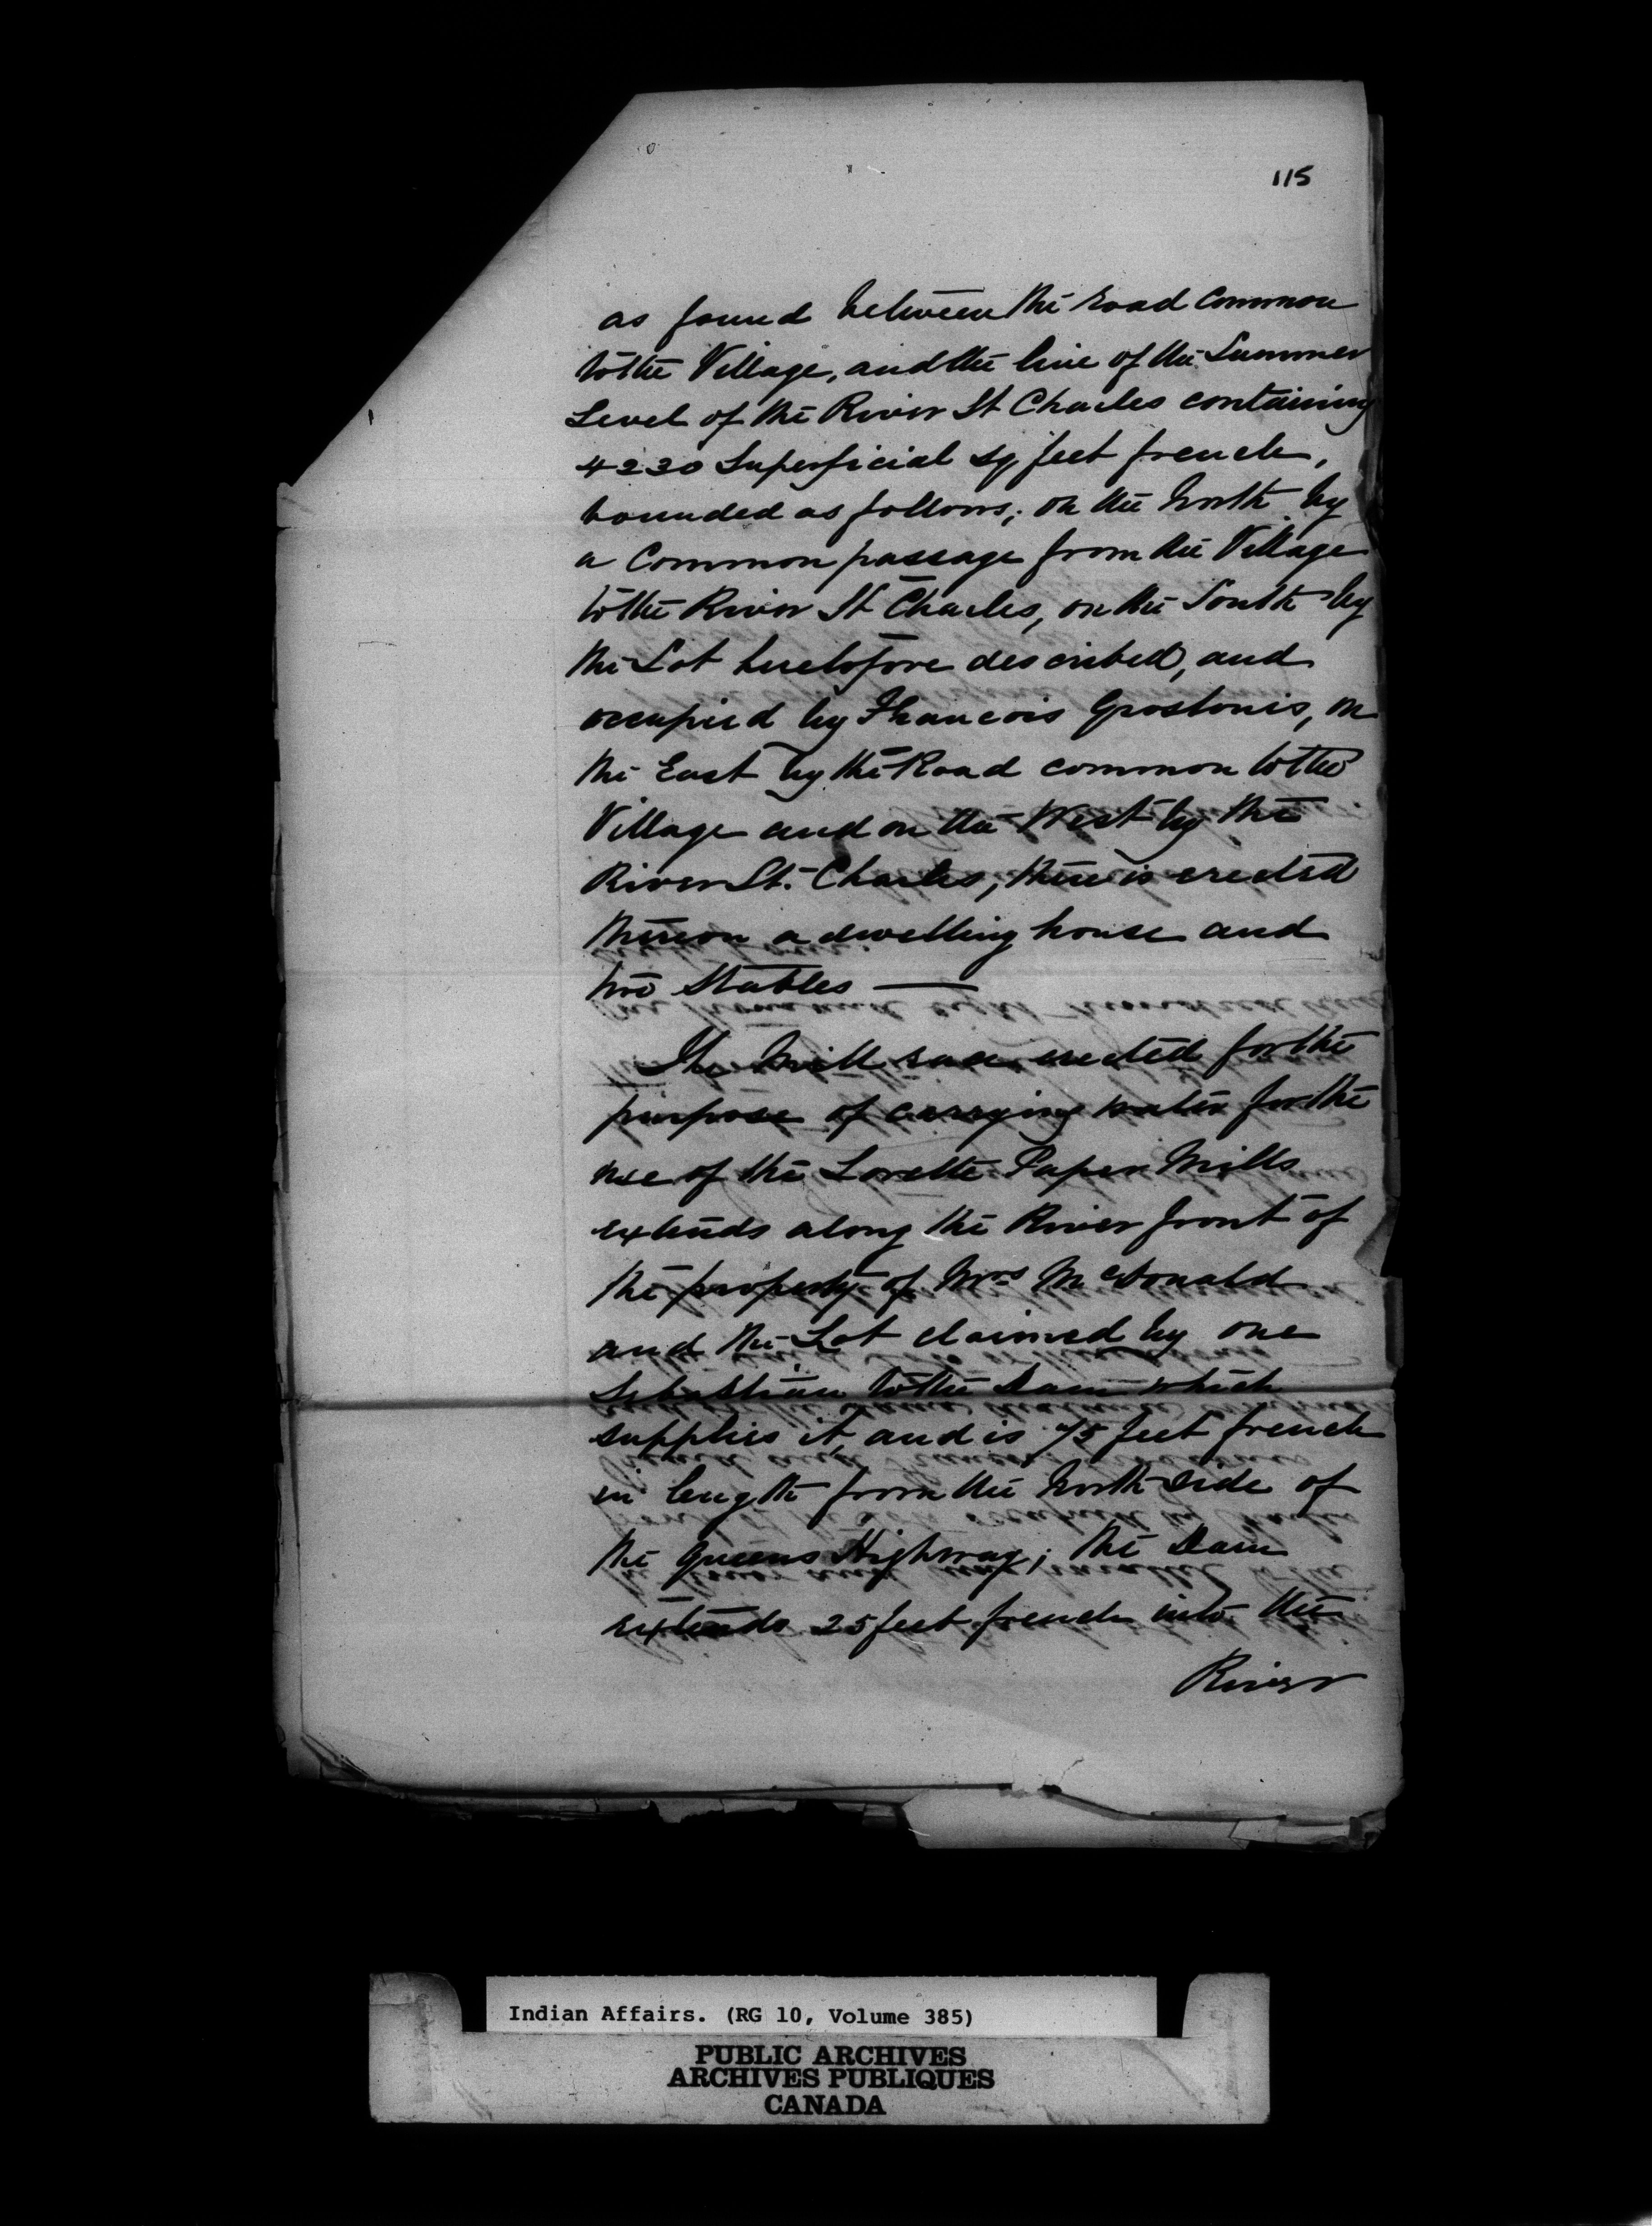 115
as found between the road common
to the Village, and the line of the Summer
Level of the River St Charles containing
4230 Superficial sq feet french,
bounded as follows; on the North by
a Common passage from the Village
to the River St Charles, on the South by
the Lot heretofore described, and
occupied by Francois Groslouis, on
the East by the Road common to the
Village and on the West by the
River St. Charles, there is erected
thereon a dwelling house and
two Stables —
The Mill race erected for the
purpose of carrying water for the
use of the Lorette Paper Mills
extends along the River front of
the property of Mrs McDonald
and the Lot claimed by one
Sebastian to the Dam which
supplies it, and is 75 feet french
in length from the North side of
the Queens Highway; the Dam
extends 25 feet french into the
River
Indian Affairs. (RG 10, Volume 385)
PUBLIC ARCHIVES
ARCHIVES PUBLIQUES
CANADA